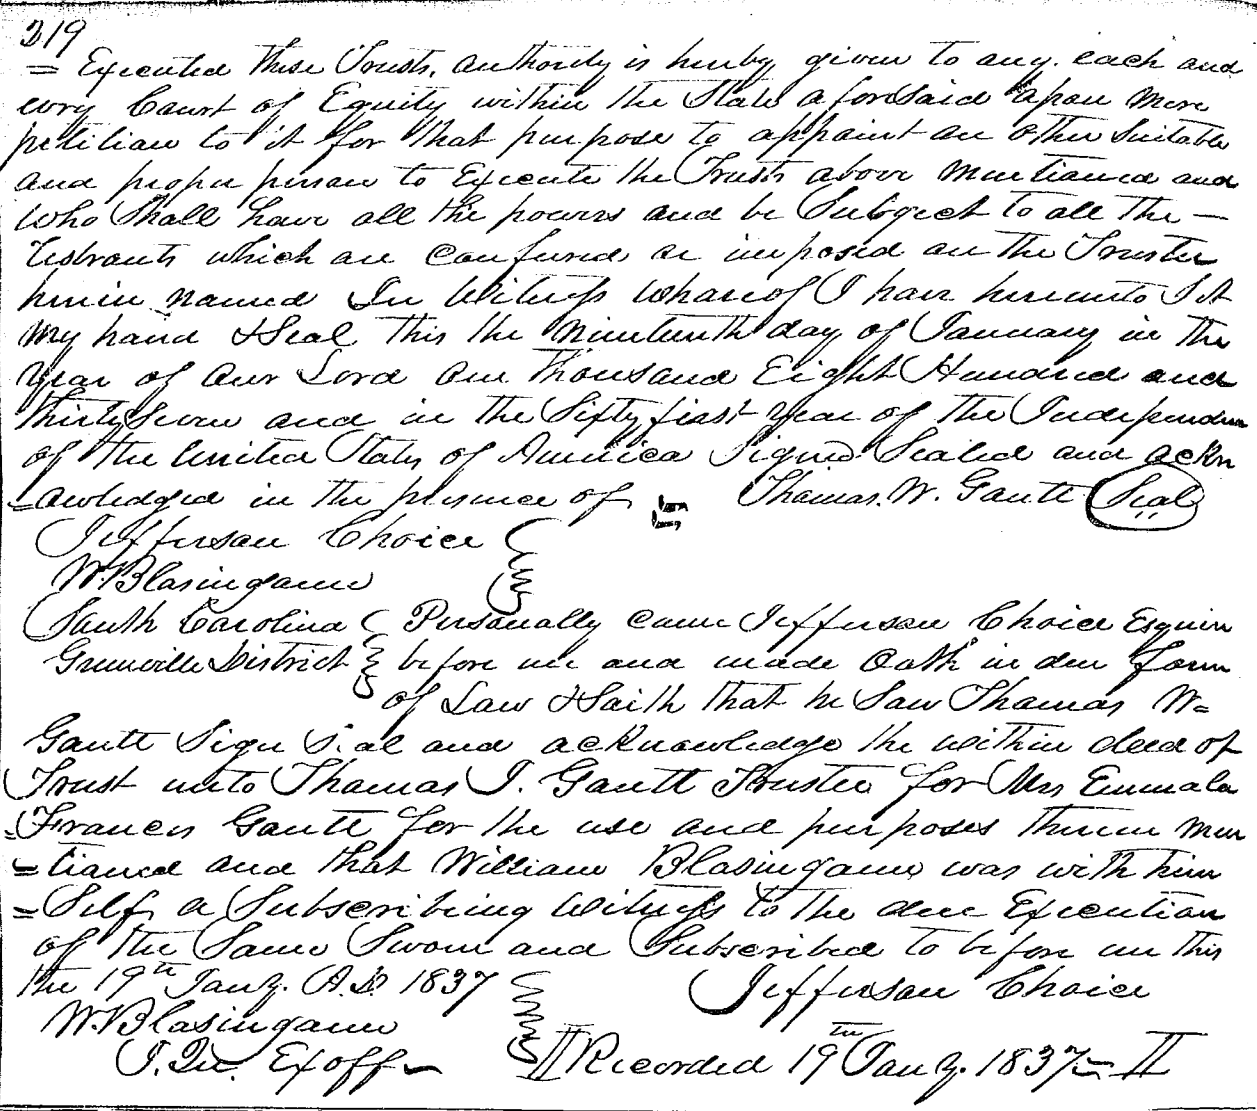 219
= Executed these Trusts, authority is hereby given to any, each and
every Court of Equity within the State aforesaid upon mere
petition to it for that purpose to appoint an other Suitable
and proper person to Execute the Trusts above mentioned and
who Shall have all the powers and be Subject to all the —
restraints which are confered or imposed on the Trustee
herein named In Witness whareof I have hereunto Set
my hand & Seal this the nineteenth day of January in the
year of our Lord one thousand Eight Hundred and
thirty Seven and in the Sixty first year of the Independence
of the United States of America Signed Sealed and ackn
=owledged in the presence of Thomas. W. Gantt Seal
Jefferson Choice
W. Blasingame
South Carolina Personally came Jefferson Choice Esquire
Greenville District before me and made Oath in due form
of Law & Saith that he Saw Thomas W=
Gantt Sign Seal and acknowledge the within deed of
Trust unto Thomas J. Gantt Trustee for Mrs Emmala
=Frances Gantt for the use and purposes therein men
=tioned and that William Blasingame was with him
=Self, a Subscribing Witness to the due Execution
of the Same Sworn and Subscribed to before me this
the 19th Jany. A.D. 1837 Jefferson Choice
W. Blasingame
J. Qu. Exoff Recorded 19th Jany. 1837